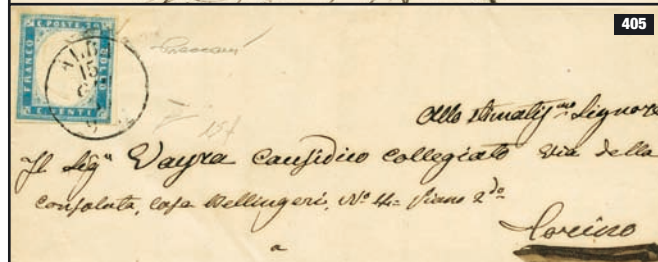 405
C. POSTE 20
FRANCO
BOLLO
C. VENTI
ALB
15
15f
Allo Stimatiss.mo Signore
Il Sig.r Vayra Causidico Collegiato Via della
Consolata, Casa Bellingeri, N.o 4 = Piano 2.do
a
Torino